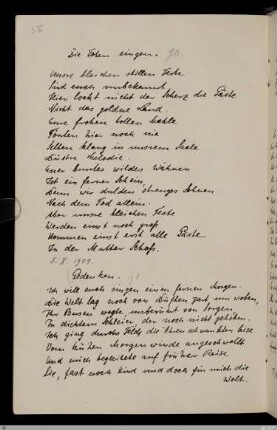 56
Die Toten singen.
Unsre bleichen stillen Feste
Sind euch unbekannt
Hier lockt nicht der Scherz die Gäste
Nicht das goldne Land.
Eure frohen tollen
Tönten hier noch nie
Selten klang in unsrem Saale
Düstre Melodie.
Euer buntes wildes Wähnen
Ist ein ferner Schein
Denn wir dulden strenges Sehnen
Nach dem Tod allein.
Aber unsre bleichen Feste
Werden einst noch groß
Kommen einst erst alle Gäste
In der Mutter Schoß.
5. 8. 1909
Gedenken.
Ich will euch singen einen fernen Morgen.
Die Welt lag noch von Düften zart um woben,
Ihr Busen wogte unberührt von Sorgen
In dichtem Schleier, der noch nicht gehoben.
Ich ging durchs Feld, die Ähren schwankten leise
Vom kühlen Morgenwinde angeschwellt
Und mich begleitete auf früher Reise
Die, fast noch Kind und doch für mich die
Welt.